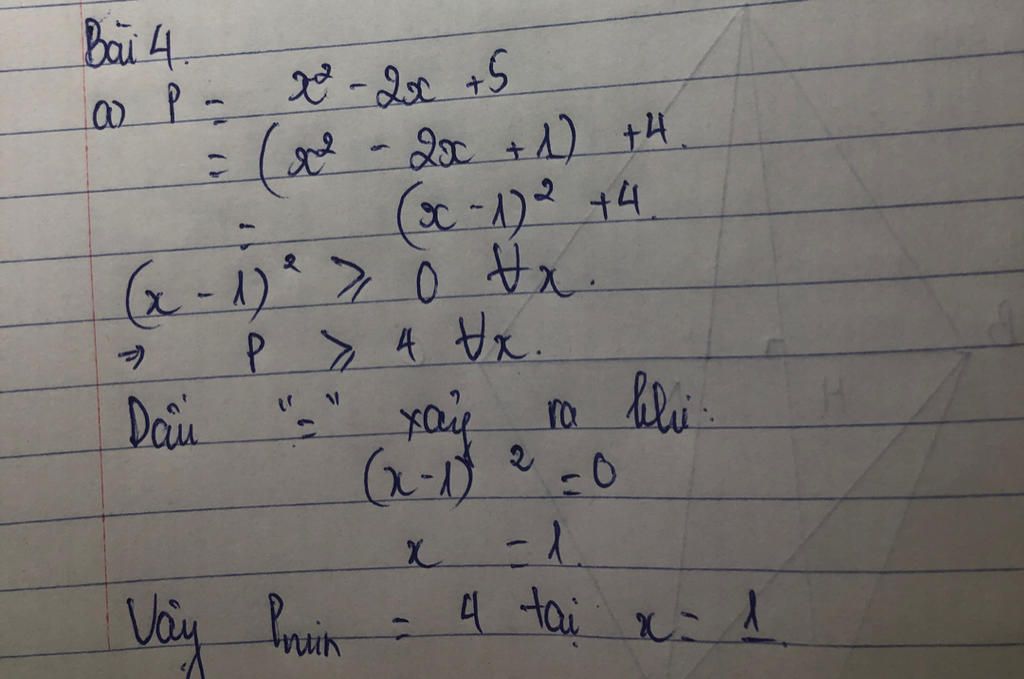 Bài 4.
a) P = x² - 2x + 5
= (x² - 2x + 1) + 4.
= (x - 1)² + 4.
(x - 1)² ⩾ 0 ∀x.
⇒ P ⩾ 4 ∀x.
Dấu "=" xảy ra khi:
(x - 1)² = 0
x = 1.
Vậy Pmin = 4 tại x = 1.
B
H